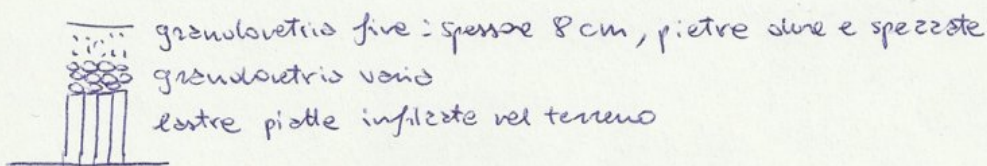 granulometria fine: spessore 8 cm, pietre dure e spezzate
granulometria varia
lastre piatte infilzate nel terreno